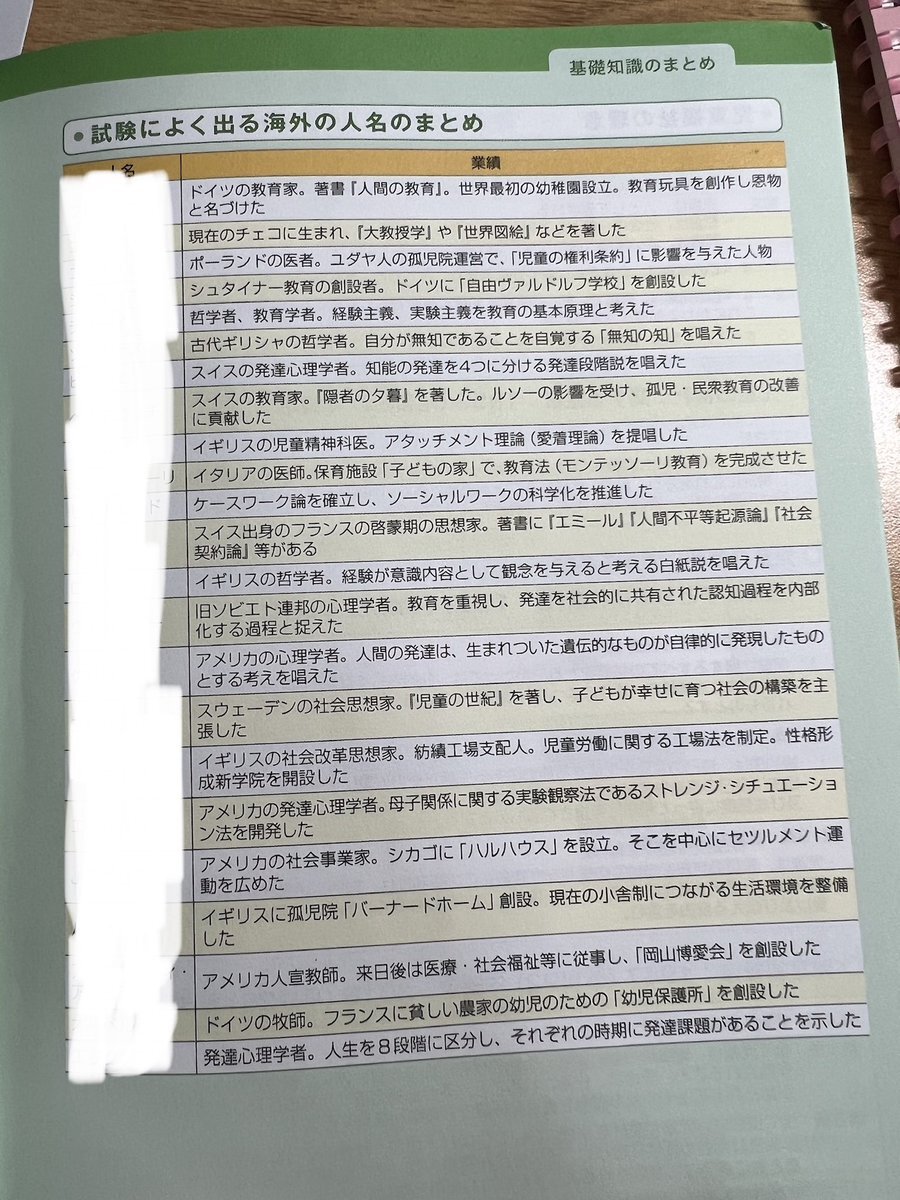 基礎知識のまとめ
●試験によく出る海外の人名のまとめ
人名
業績
ドイツの教育家。著書『人間の教育』。世界最初の幼稚園設立。教育玩具を創作し恩物
と名づけた
現在のチェコに生まれ、『大教授学』や『世界図絵』などを著した
ポーランドの医者。ユダヤ人の孤児院運営で、「児童の権利条約」に影響を与えた人物
シュタイナー教育の創設者。ドイツに「自由ヴァルドルフ学校」を創設した
哲学者、教育学者。経験主義、実験主義を教育の基本原理と考えた
古代ギリシャの哲学者。自分が無知であることを自覚する「無知の知」を唱えた
スイスの発達心理学者。知能の発達を4つに分ける発達段階説を唱えた
スイスの教育家。『隠者の夕暮』を著した。ルソーの影響を受け、孤児・民衆教育の改善
に貢献した
イギリスの児童精神科医。アタッチメント理論（愛着理論）を提唱した
ーリ
イタリアの医師。保育施設「子どもの家」で、教育法（モンテッソーリ教育）を完成させた
ド
ケースワーク論を確立し、ソーシャルワークの科学化を推進した
スイス出身のフランスの啓蒙期の思想家。著書に『エミール』『人間不平等起源論』『社会
契約論』等がある
イギリスの哲学者。経験が意識内容として観念を与えると考える白紙説を唱えた
旧ソビエト連邦の心理学者。教育を重視し、発達を社会的に共有された認知過程を内部
化する過程と捉えた
アメリカの心理学者。人間の発達は、生まれついた遺伝的なものが自律的に発現したもの
とする考えを唱えた
スウェーデンの社会思想家。『児童の世紀』を著し、子どもが幸せに育つ社会の構築を主
張した
イギリスの社会改革思想家。紡績工場支配人。児童労働に関する工場法を制定。性格形
成新学院を開設した
アメリカの発達心理学者。母子関係に関する実験観察法であるストレンジ・シチュエーショ
ン法を開発した
アメリカの社会事業家。シカゴに「ハルハウス」を設立。そこを中心にセツルメント運
動を広めた
イギリスに孤児院「バーナードホーム」創設。現在の小舎制につながる生活環境を整備
した
アメリカ人宣教師。来日後は医療・社会福祉等に従事し、「岡山博愛会」を創設した
ドイツの牧師。フランスに貧しい農家の幼児のための「幼児保護所」を創設した
発達心理学者。人生を８段階に区分し、それぞれの時期に発達課題があることを示した